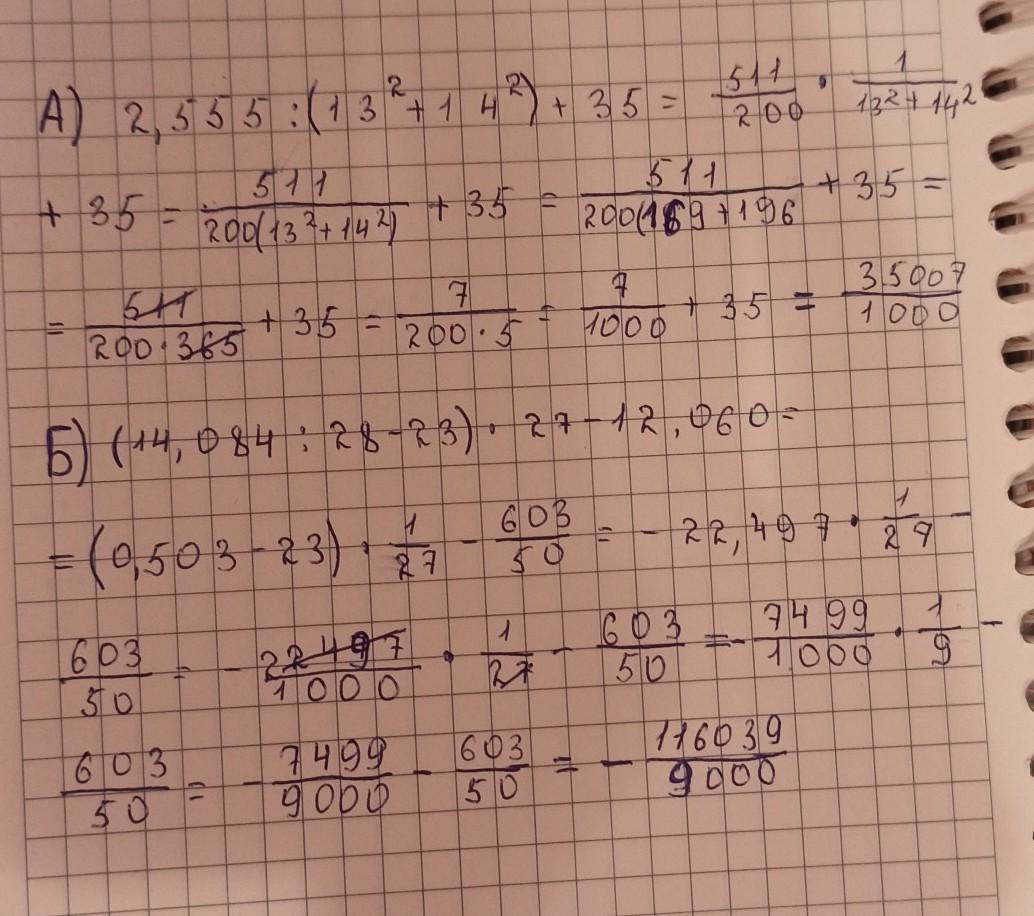 А) 2,555 : (13² + 14²) + 35 = 511/200 · 1/(13² + 14²)
+ 35 = 511/(200(13² + 14²)) + 35 = 511/(200(169 + 196 + 35 =
= 511/(200 · 365) + 35 = 7/(200 · 5) = 7/1000 + 35 = 35007/1000
Б) (14,084 : 28 - 23) · 27 - 12,060 =
= (0,503 - 23) · 1/27 - 603/50 = - 22,497 · 1/27 -
603/50 = - 22497/1000 · 1/27 - 603/50 = - 7499/1000 · 1/9 -
603/50 = - 7499/9000 - 603/50 = - 116039/9000